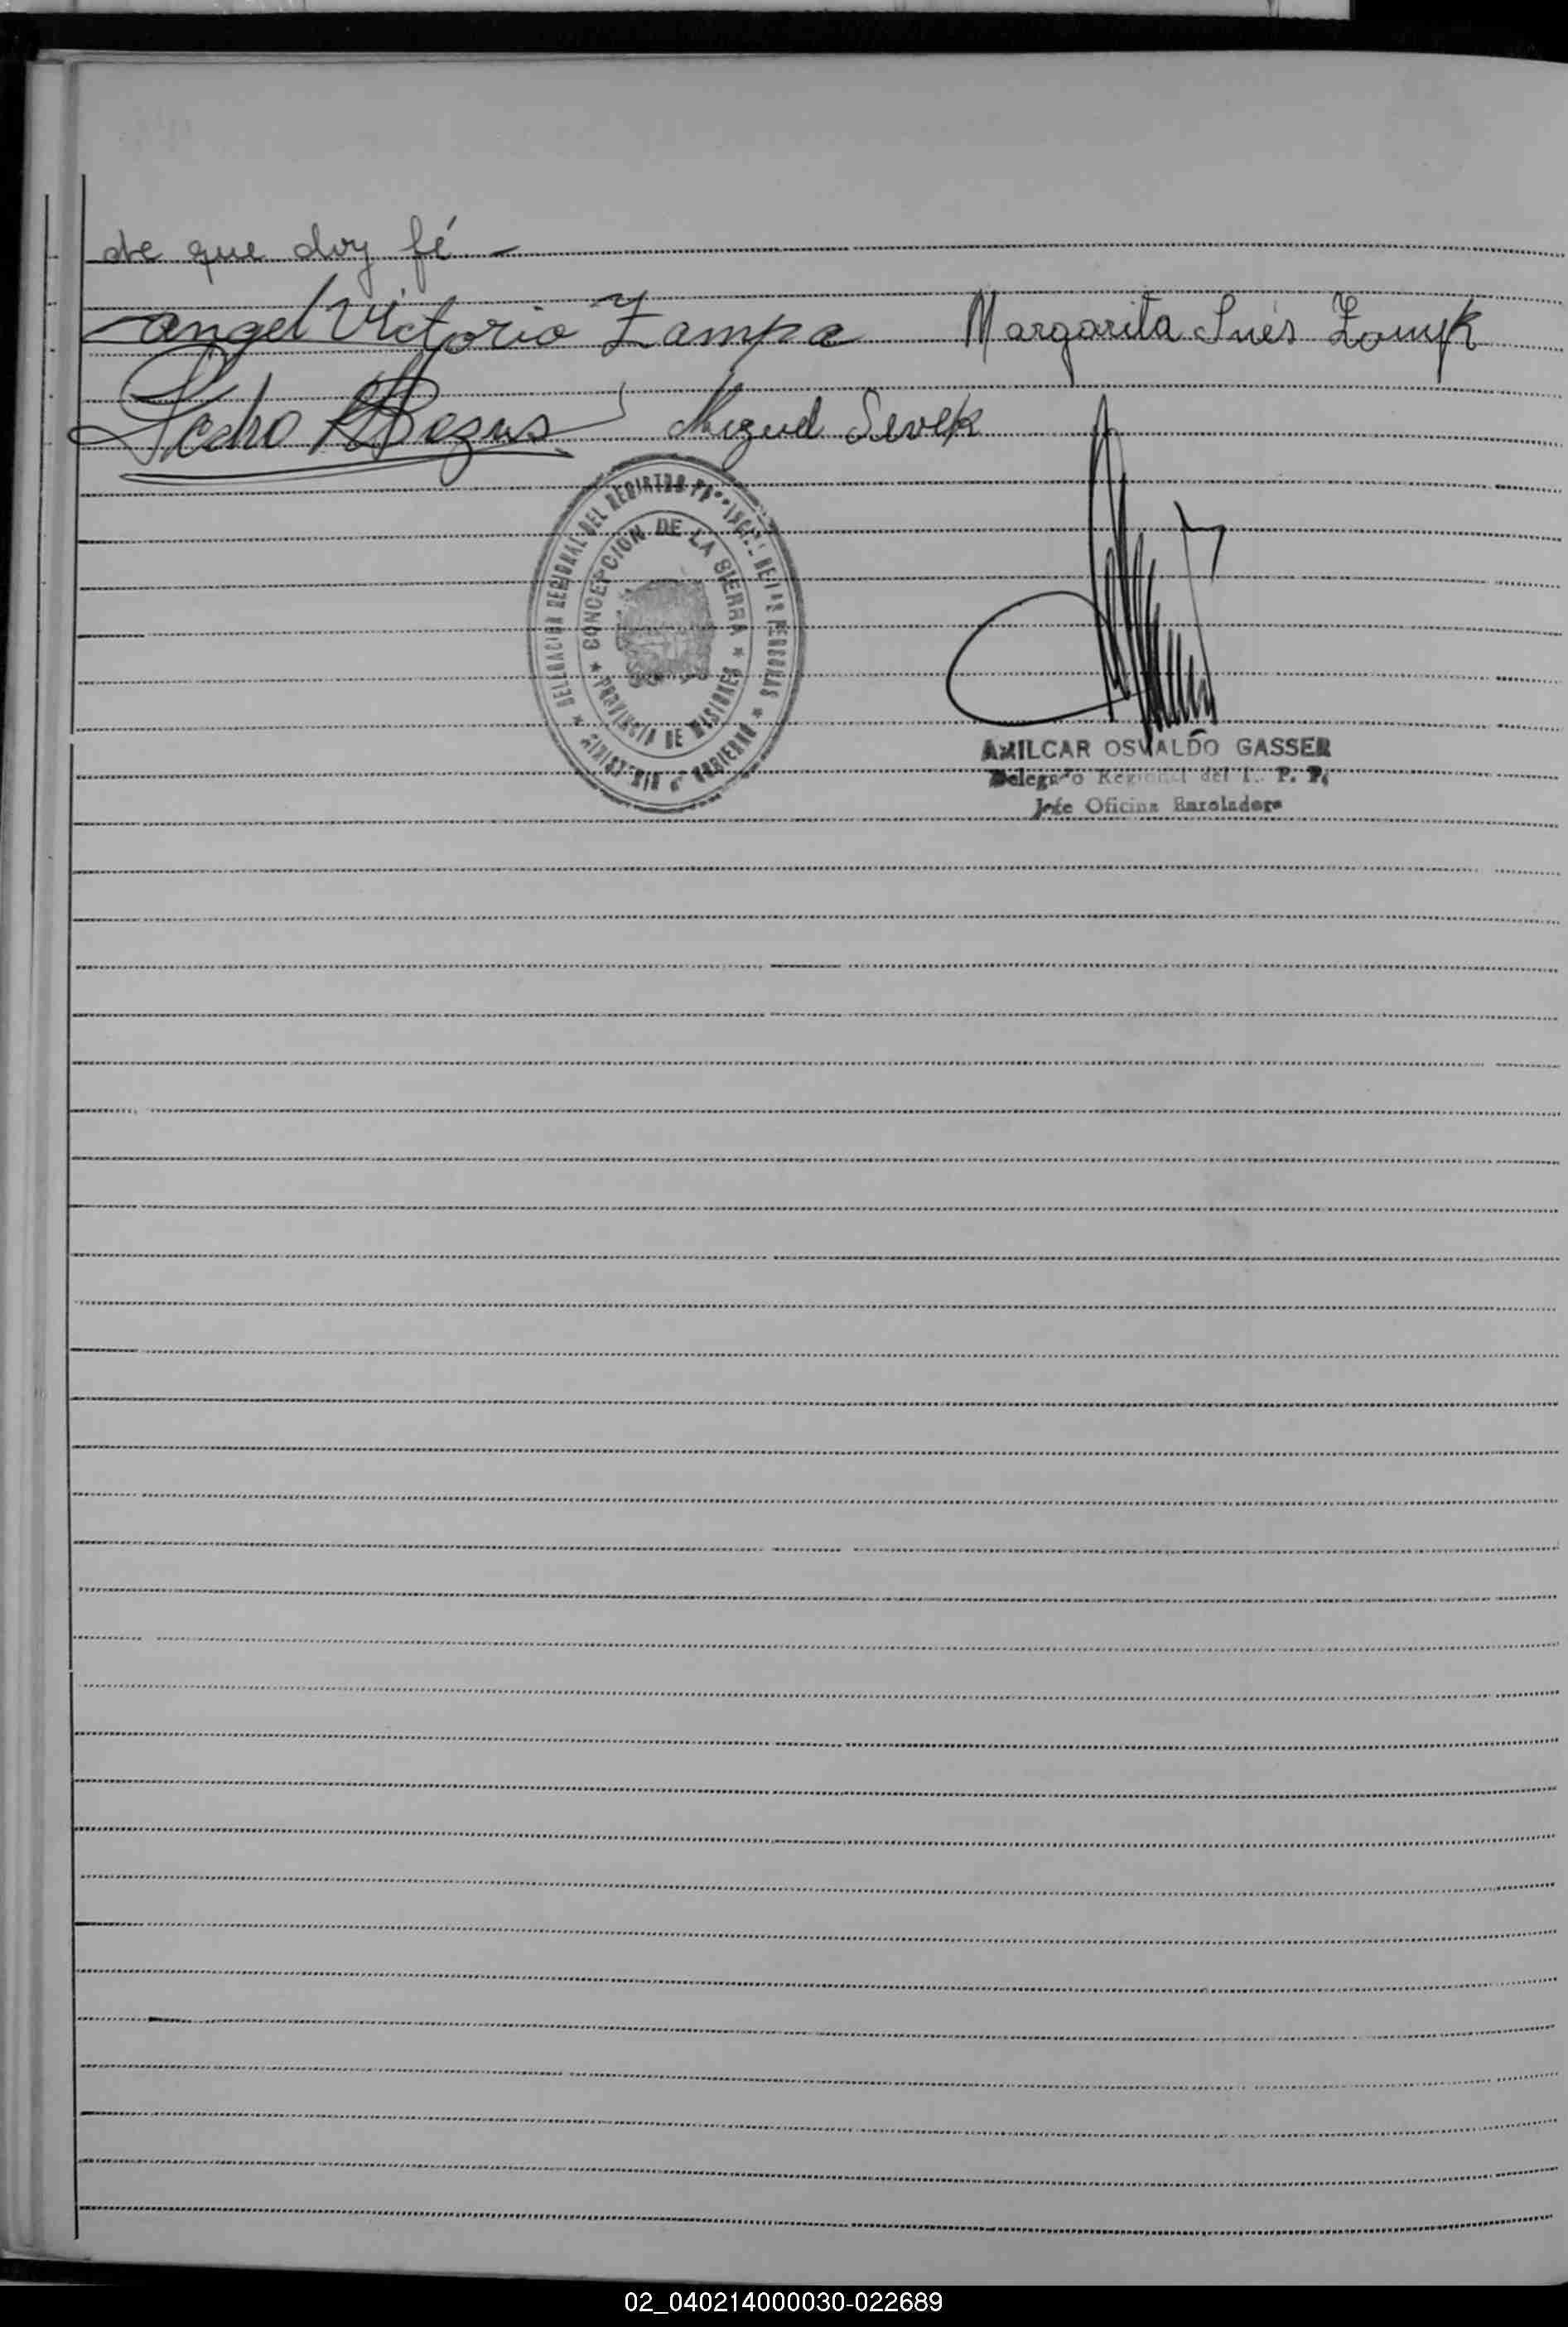 de que doy fé -
Angel Victorio Zampa Margarita Inés Zamyk
Pedro Miguel Sevek
DELEGACION REGIONAL DEL REGISTRO DE LAS PERSONAS
CONCEPCION DE LA SIERRA
PROVINCIA DE MISIONES
MINISTERIO DE GOBIERNO
AMILCAR OSVALDO GASSER
Delegado Regional del P. P.
Jefe Oficina Enroladora
02_040214000030-022689